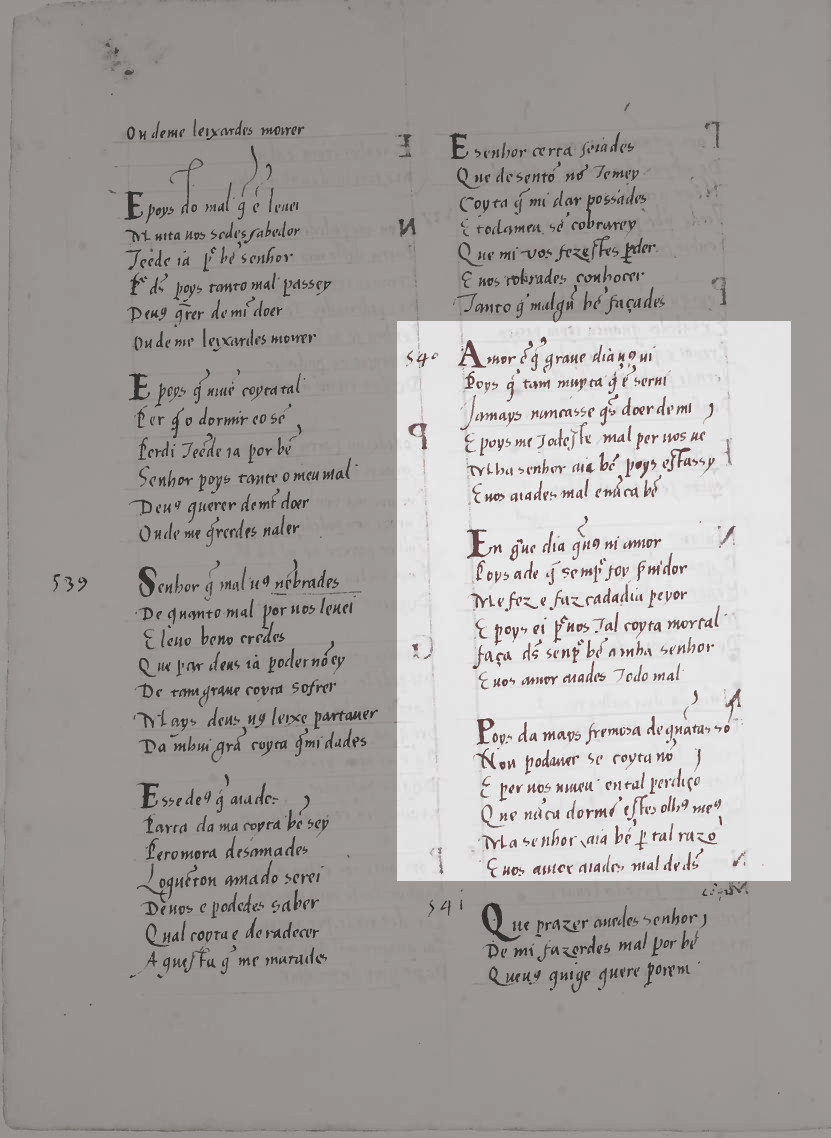 Ou deme leixardes morrer
E poys do mal q̄ ē leuei
Muita uos sedes sabedor
Teēde ia pʳ bē senhor
Pʳ ds̄ poys tanto mal passey
Deuꝯ q̄rer de mī doer
Ou de me leixardes morrer
E poys q̄ niuē coyta tal
Per q̄ o dormir e o sē
Perdi Teēde ia por bē
Senhor poys tante o meu mal
Deuꝯ querer de mī doer
Ou de me q̄rerdes ualer
539
Senhor q̄ mal uꝯ nēbrades
De quanto mal por uos leuei
E leuo beno credes
Que par deus ia poder nō ey
De tam graue coyta sofrer
Mays deus uꝯ leixe partauer
Da mhui grā coyta q̄ mi dades
Esse deꝯ q̄ aiades
Parta da ma coyta bē sey
Pero mora desamades
Loguēton amado serei
Deuos e podedes saber
Qual coyta e de radecer
A questa q̄ me matades
E senhor certa seiades
Que desentō nō Temey
Coyta q̄ mi dar possades
E todameu sē cobrarey
Que mi uos fezestes p̄der
E uos tolrades conhocer
Tanto q̄ malgū bē façades
540
Amor ē q̄ graue dia uꝯ ui
Poys q̄ tam muyta q̄ ē serui
Jamays nuncasse q̄s doer de mi
E poys me Todeste mal per uos ue
Mha senhor aia bē poys estassy
E uos aiades mal enūca bē
Em g̃ue dia q̄uꝯ ui amor
Poys ade q̄ sempʳ foy s̄uidor
Me fez e faz cada dia peyor
E poys ei pʳ uos Tal coyta mortal
faça ds̄ senpʳ bē a mha senhor
E uos amor aiades Todo mal
Poys da mays fremosa de quātas sō
Non pod auer se coyta nō
E per uos uiueu en tal perdiçō
Que nūca dormē estes olhꝯ meꝯ
Ma senhor aia bē p̄ tal razō
E uos amor aiades mal de ds̄
541
Que prazer auedes senhor
De mi fazerdes mal por bē
Queuꝯ quige quere porem